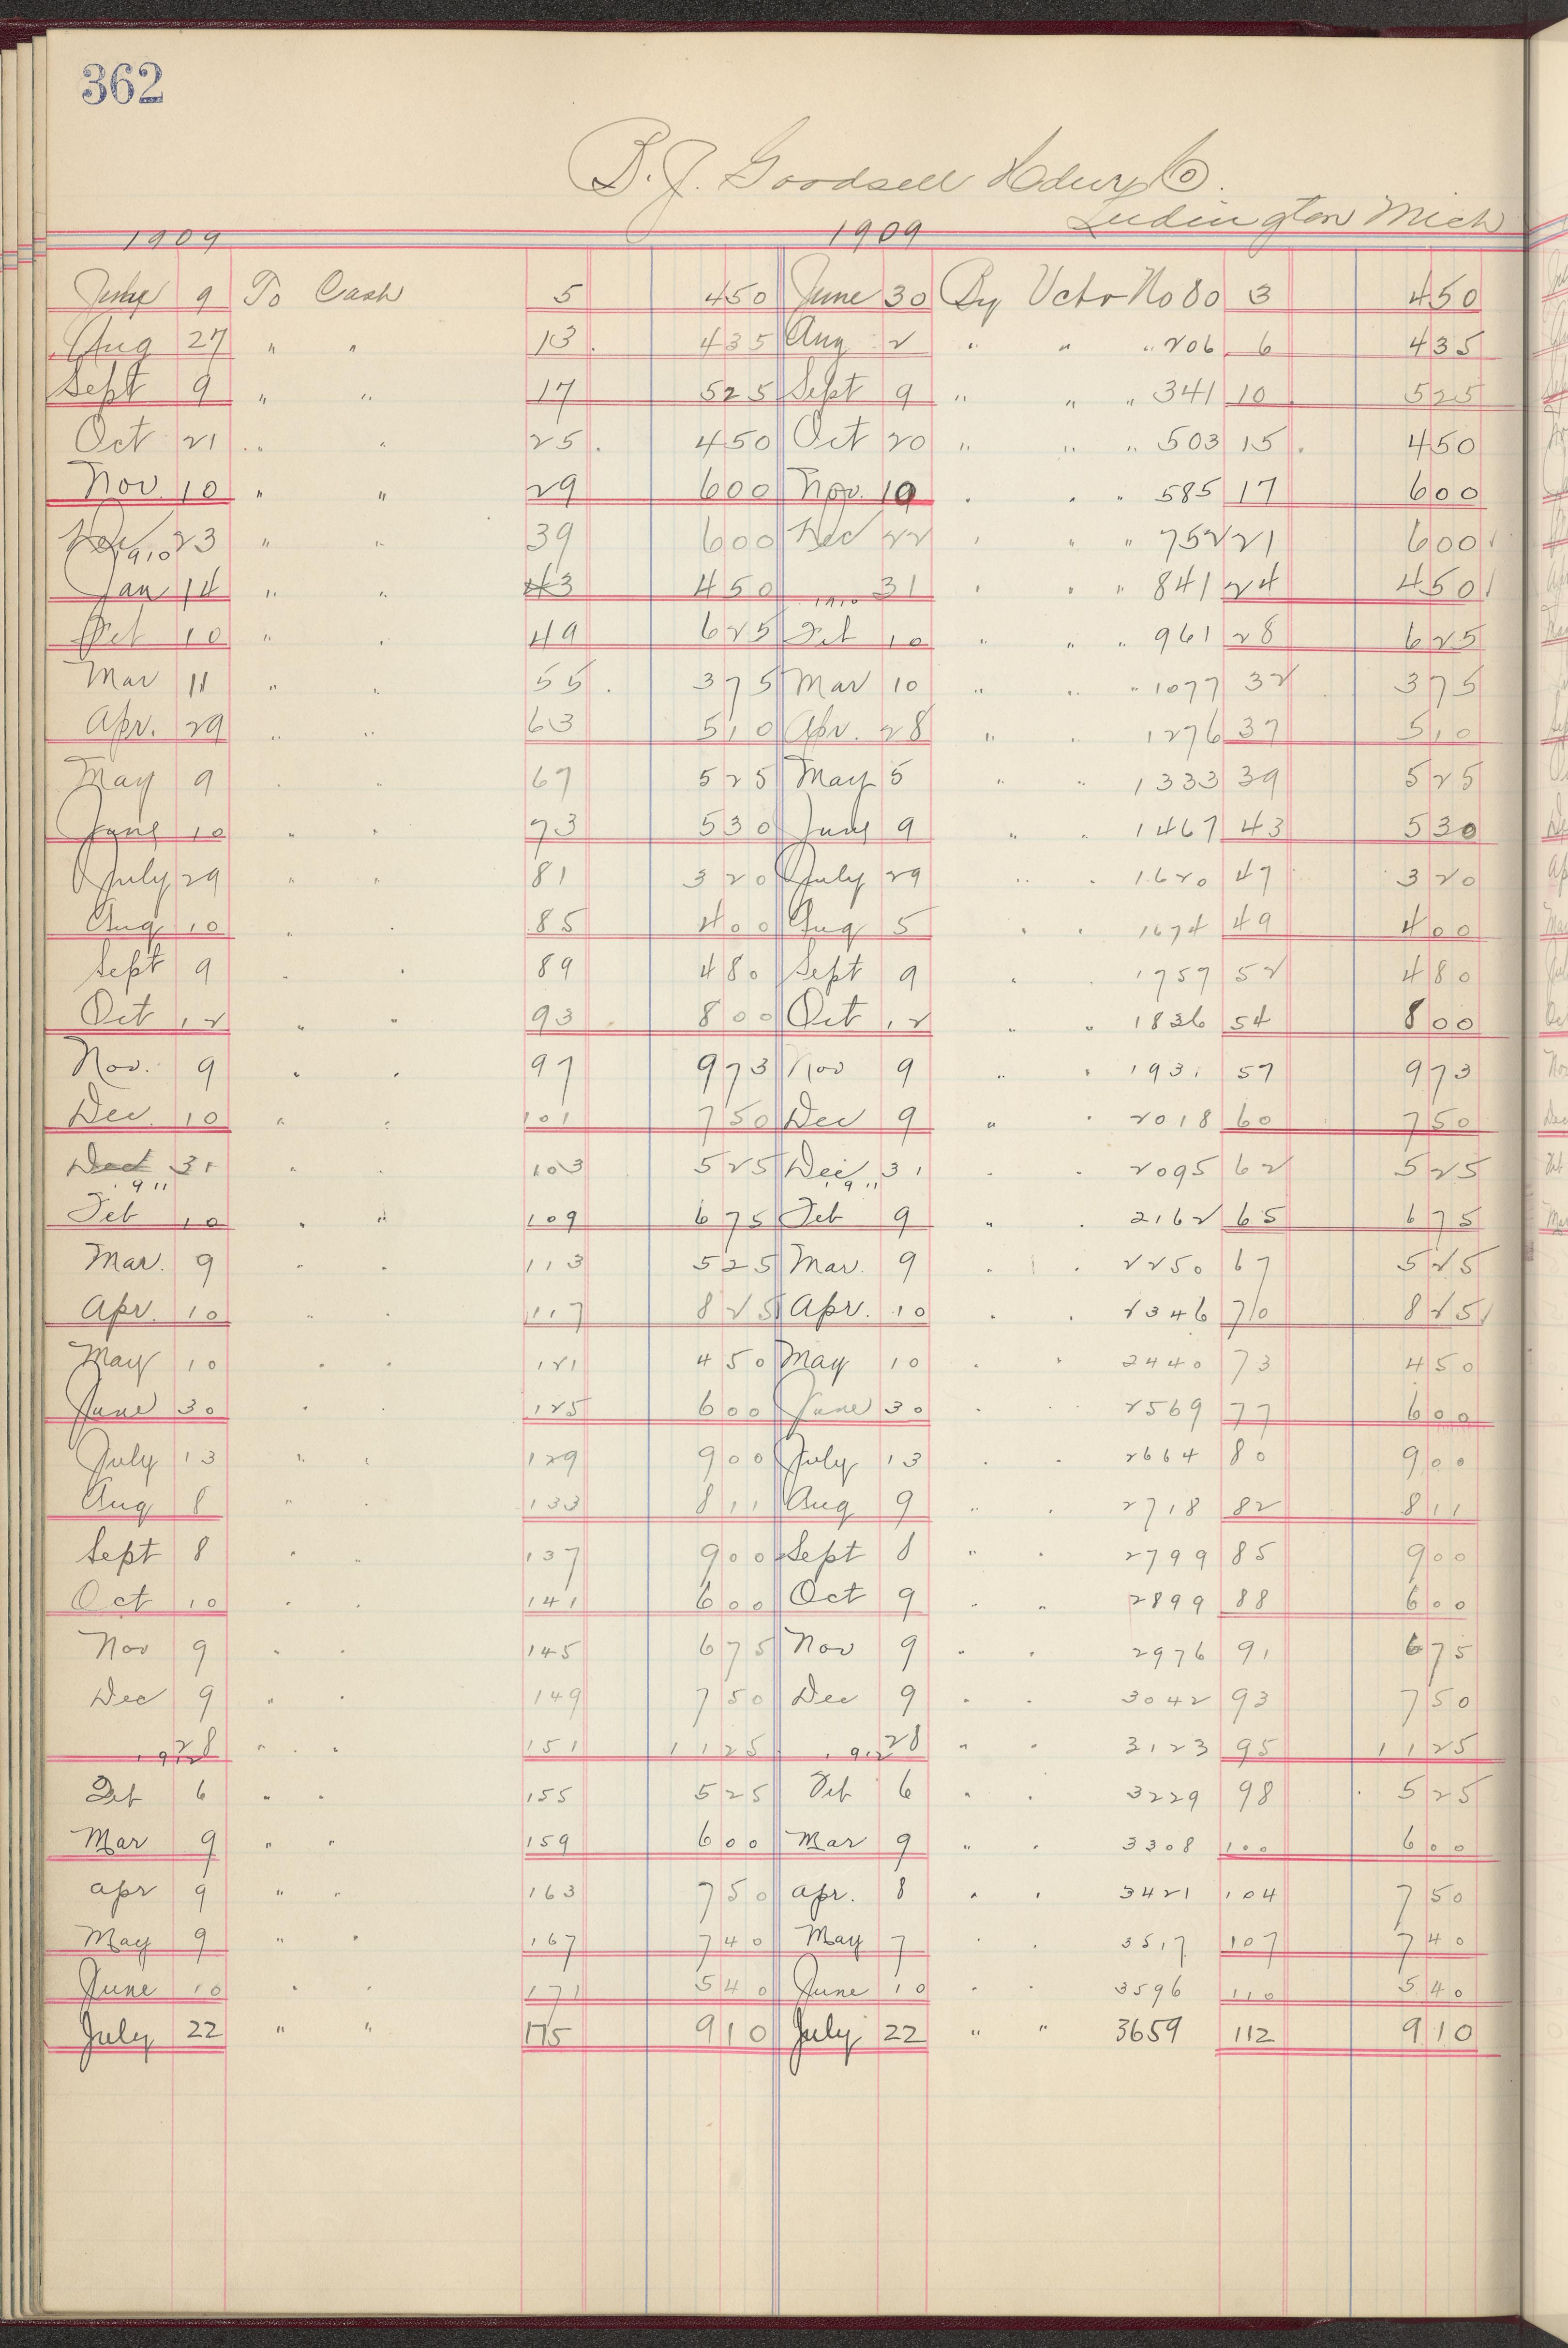 362
B. J. Goodsell Hdwr Co.
Ludington Mich
1909 1909
July 9 To Cash 5 450 June 30 By Vchr No 80 3 450
Aug 27 " " 13 435 Aug 2 " " " 206 6 435
Sept 9 " " 17 525 Sept 9 " " " 341 10 525
Oct 21 " " 25 450 Oct 20 " " " 503 15 450
Nov. 10 " " 29 600 Nov. 10 " " " 585 17 600
Dec 23 " " 39 600 Dec 22 " " " 752 21 600
1910
Jan 14 " " 43 450 31 " " " 841 24 450
1910
Feb 10 " " 49 625 Feb 10 " " " 961 28 625
Mar 11 " " 55 375 Mar 10 " " " 1077 32 375
Apr. 29 " " 63 510 Apr. 28 " " 1276 37 510
May 9 " " 67 525 May 5 " " 1333 39 525
June 10 " " 73 530 June 9 " " 1467 43 530
July 29 " " 81 320 July 29 " " 1620 47 320
Aug 10 " " 85 400 Aug 5 " " 1674 49 400
Sept 9 " " 89 480 Sept 9 " " 1757 52 480
Oct 12 " " 93 800 Oct 12 " " 1836 54 800
Nov. 9 " " 97 973 Nov 9 " " 1931 57 973
Dec. 10 " " 101 750 Dec 9 " " 2018 60 750
Dec 31 " " 103 525 Dec 31 " " 2095 62 525
1911 1911
Feb 10 " " 109 675 Feb 9 " " 2162 65 675
Mar. 9 " " 113 525 Mar. 9 " " 2250 67 525
Apr. 10 " " 117 825 Apr. 10 " " 2346 70 825
May 10 " " 121 450 May 10 " " 2440 73 450
June 30 " " 125 600 June 30 " " 2569 77 600
July 13 " " 129 900 July 13 " " 2664 80 900
Aug 8 " " 133 811 Aug 9 " " 2718 82 811
Sept 8 " " 137 900 Sept 8 " " 2799 85 900
Oct 10 " " 141 600 Oct 9 " " 2899 88 600
Nov 9 " " 145 675 Nov 9 " " 2976 91 675
Dec 9 " " 149 750 Dec 9 " " 3042 93 750
28 " " 151 1125 28 " " 3123 95 1125
1912 1912
Feb 6 " " 155 525 Feb 6 " " 3229 98 525
Mar 9 " " 159 600 Mar 9 " " 3308 100 600
Apr 9 " " 163 750 Apr. 8 " " 3421 104 750
May 9 " " 167 740 May 7 " " 3517 107 740
June 10 " " 171 540 June 10 " " 3596 110 540
July 22 " " 175 910 July 22 " " 3659 112 910